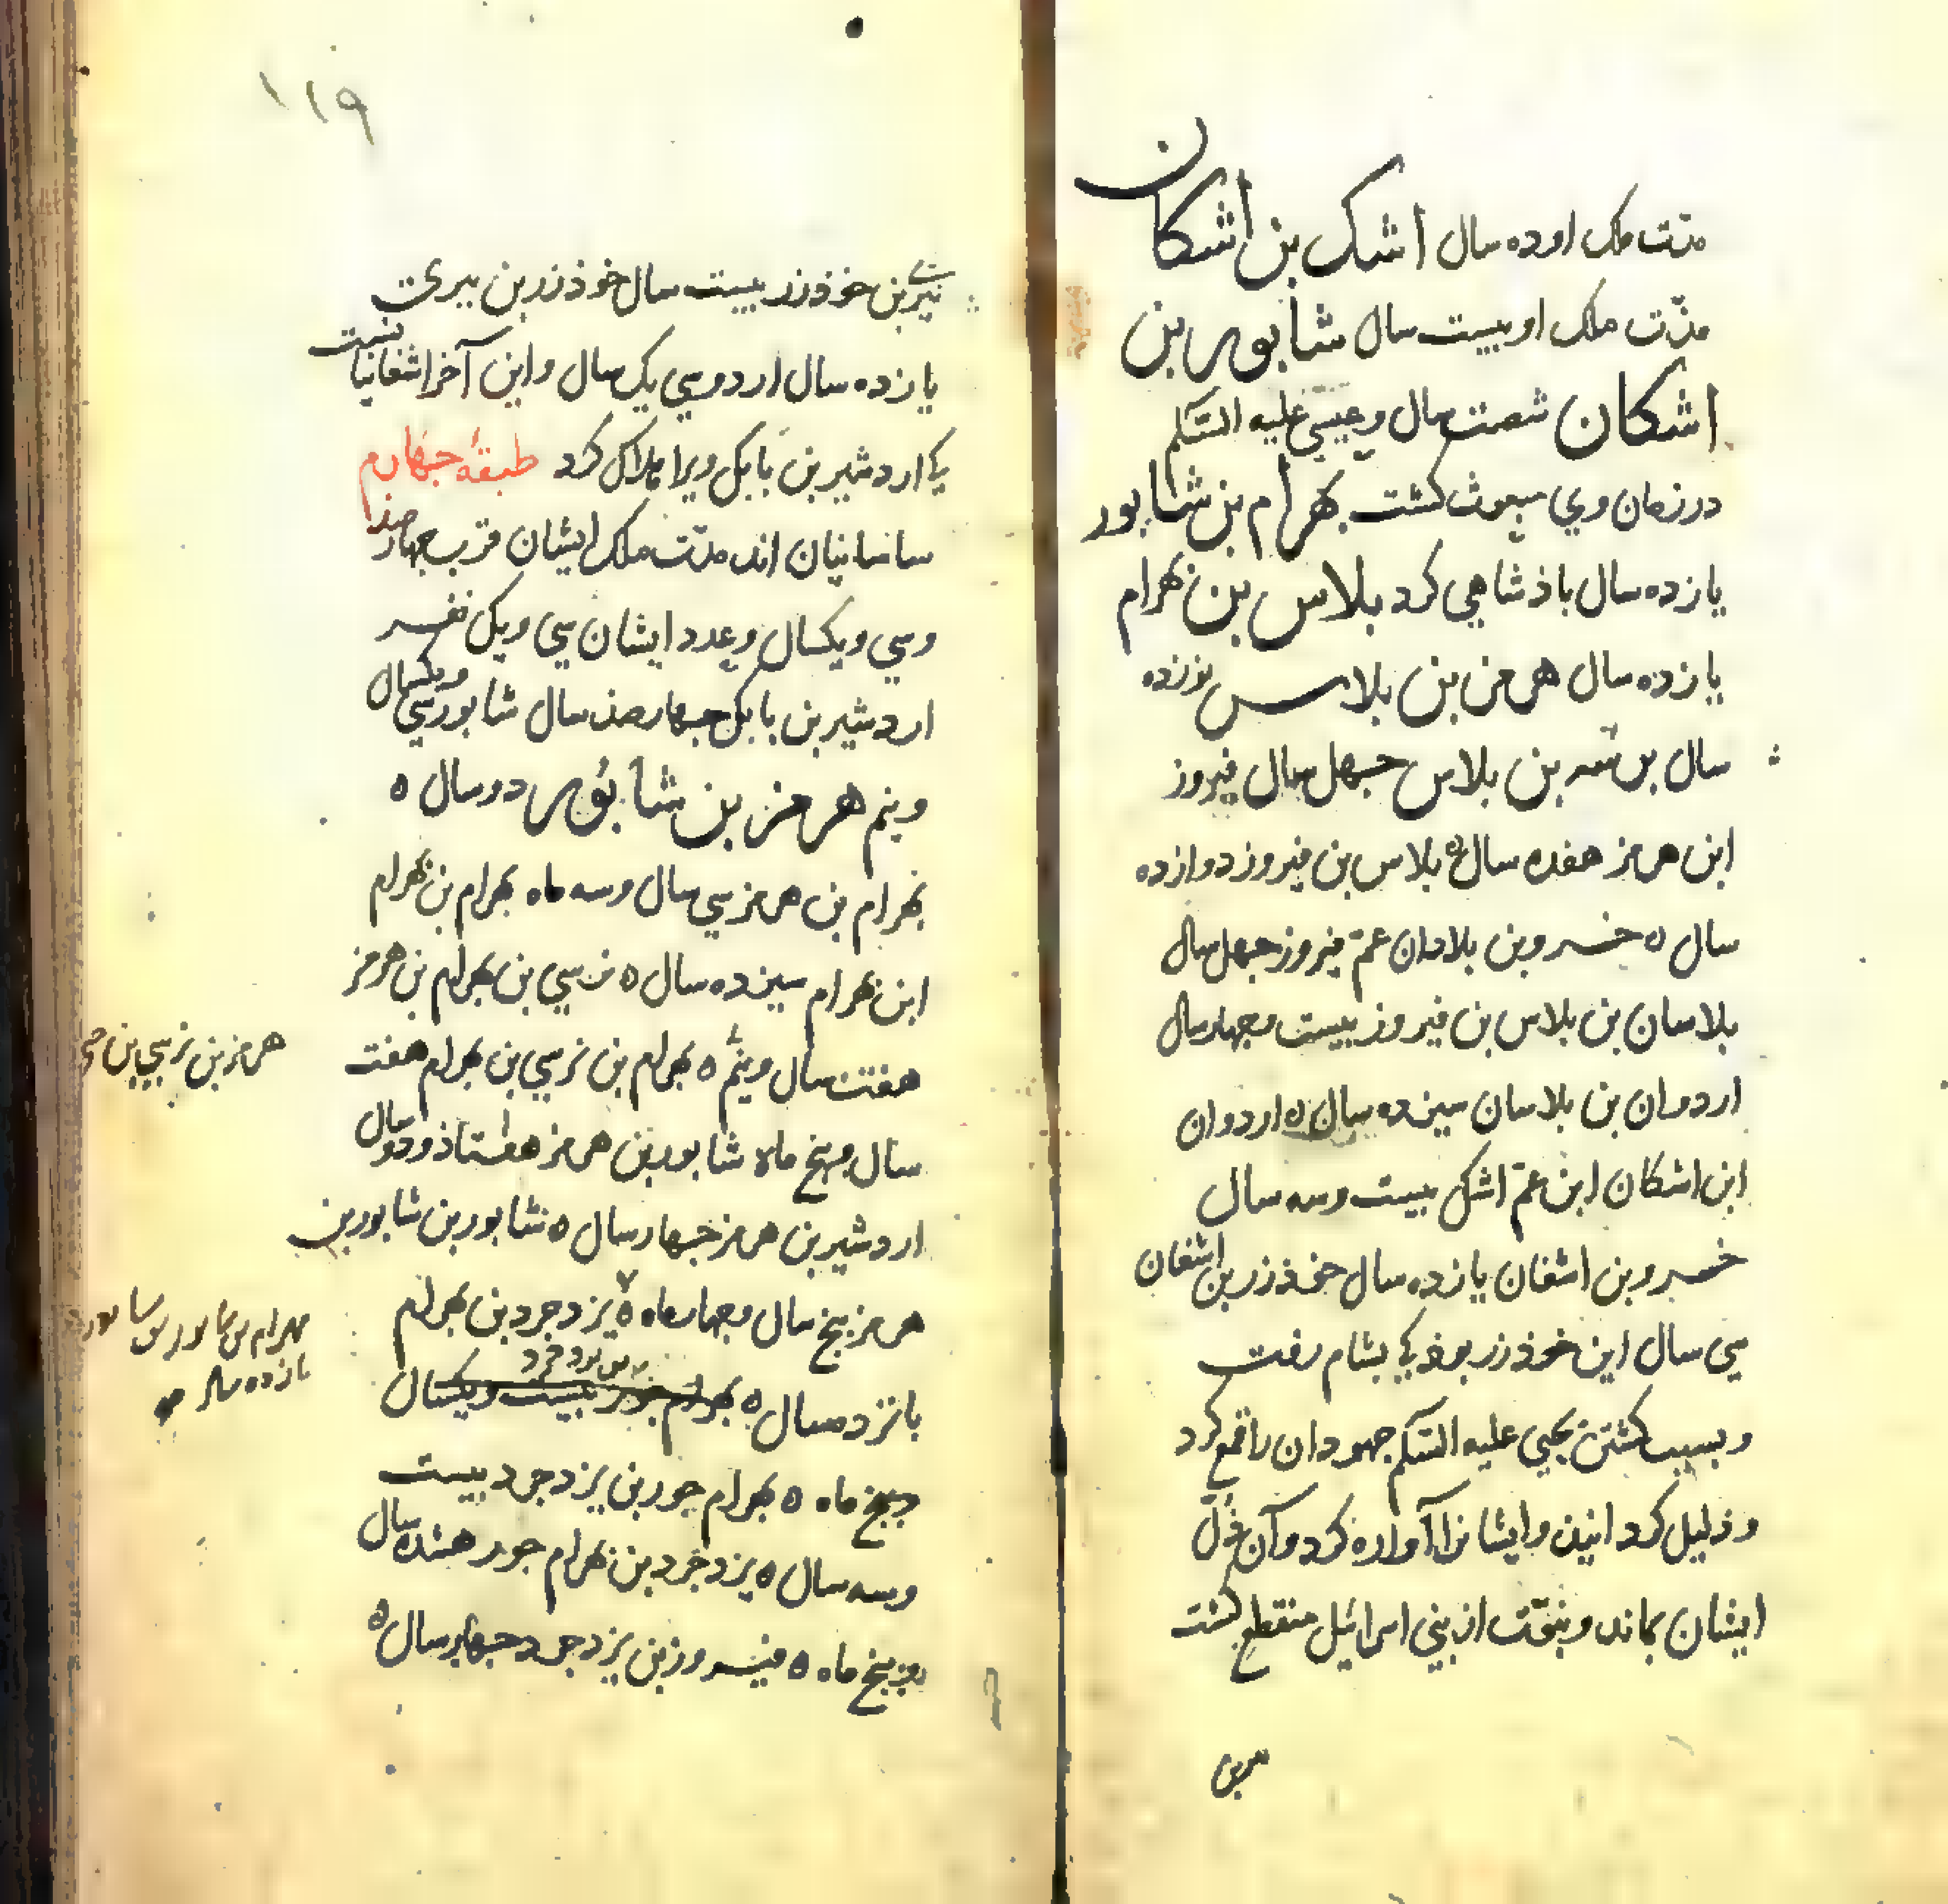 مدّت ملک او ده سال اشک بن اشکان
مدّت ملک او بیست سال شابور بن
اشکان شصت سال و عیسی علیه السّلم
در زمان وي مبعوث کشت بهرام بن شابور
یازده سال باذشاهي کرد بلاس بن بهرام
یازده سال هرمز بن بلاس نوزده
سال بن بلاس جهل سال فیروز
ابن هرمز هفده سال ه بلاس بن فیروز دوازده
سال ه خسرو بن بلادان عمّ فیروز جهل سال
بلاسان بن بلاس بن فیروز بیست و جهار سال
اردوان بن بلاسان سیزده سال ه اردوان
ابن اشکان ابن عمّ اشک بیست و سه سال
خسرو بن اشغان یازده سال خوذرز بن اشغان
سي سال این خوذرز بوذ کي بشام رفت
و بسبب کشتن یحیي علیه السّلم جهودان را قمع کرد
و ذلیل کردانید و ایشانرا آواره کرد و آن ذلّ
ایشان بماند و نبوّت از بني اسرائیل منقطع کشت
١١٩
بن خوذرز بیست سال خوذرز بن بیري
یازده سال اردوي یک سال و این آخر اشغانیانست
کي اردشیر بن بابک ویرا هلاک کرد طبقهٔ جهارم
ساسانیان اند مدّت ملک ایشان قرب جهارصذ
و سي و یکسال و عدد ایشان سي و یک نفر
اردشیر بن بابک جهارصذ سال شابور سي و یکسال
و نیم هرمز بن شابور دو سال ه
بهرام بن هرمز سي سال و سه ماه بهرام بن بهرام
ابن بهرام سیزده سال ه نرسي بن بهرام بن هرمز
هفت سال و نیم ه بهرام بن نرسي بن بهرام هفت
هرمز بن نرسي بن
سال و بنج ماه شابور بن هرمز هفتاذ و دو سال
اردشیر بن هرمز جهار سال ه شابور بن شابور بن
هرمز بنج سال و جهار ماه ه یزدجرد بن بهرام
بهرام بن شابور بن شابور
یازده سال
بانزده سال ه بهرام جور بیست و یکسال
و بنج ماه ه بهرام جور بن یزدجرد بیست
و سه سال ه یزدجرد بن بهرام جور هشده سال
و بنج ماه ه فیروز بن یزدجرد جهار سال ه